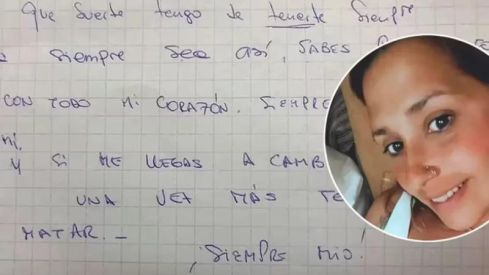 Que suerte tengo de tenerte siempre
siempre sea así, SABES
CON TODO MI CORAZÓN. SIEMPRE
mi.
Y SI ME LLEGAS A CAMB
UNA VEZ MÁS TE
MATAR._
¡SIEMPRE MÍO!